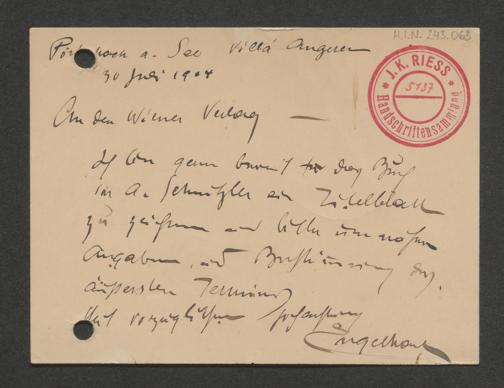 H.I.N. 243.063
Pörtschach a. See Villa Angerer
30 Juli 1904
J. K. RIESS
5137
Handschriftensammlung
An den Wiener Verlag —
Ich bin gern bereit für das Buch
von A. Schnitzler ein Titelblatt
zu zeichnen und bitte um nähere
Angaben und Bestimmung des
äußersten Termins
Mit vorzüglicher Hochachtung
Engelhart